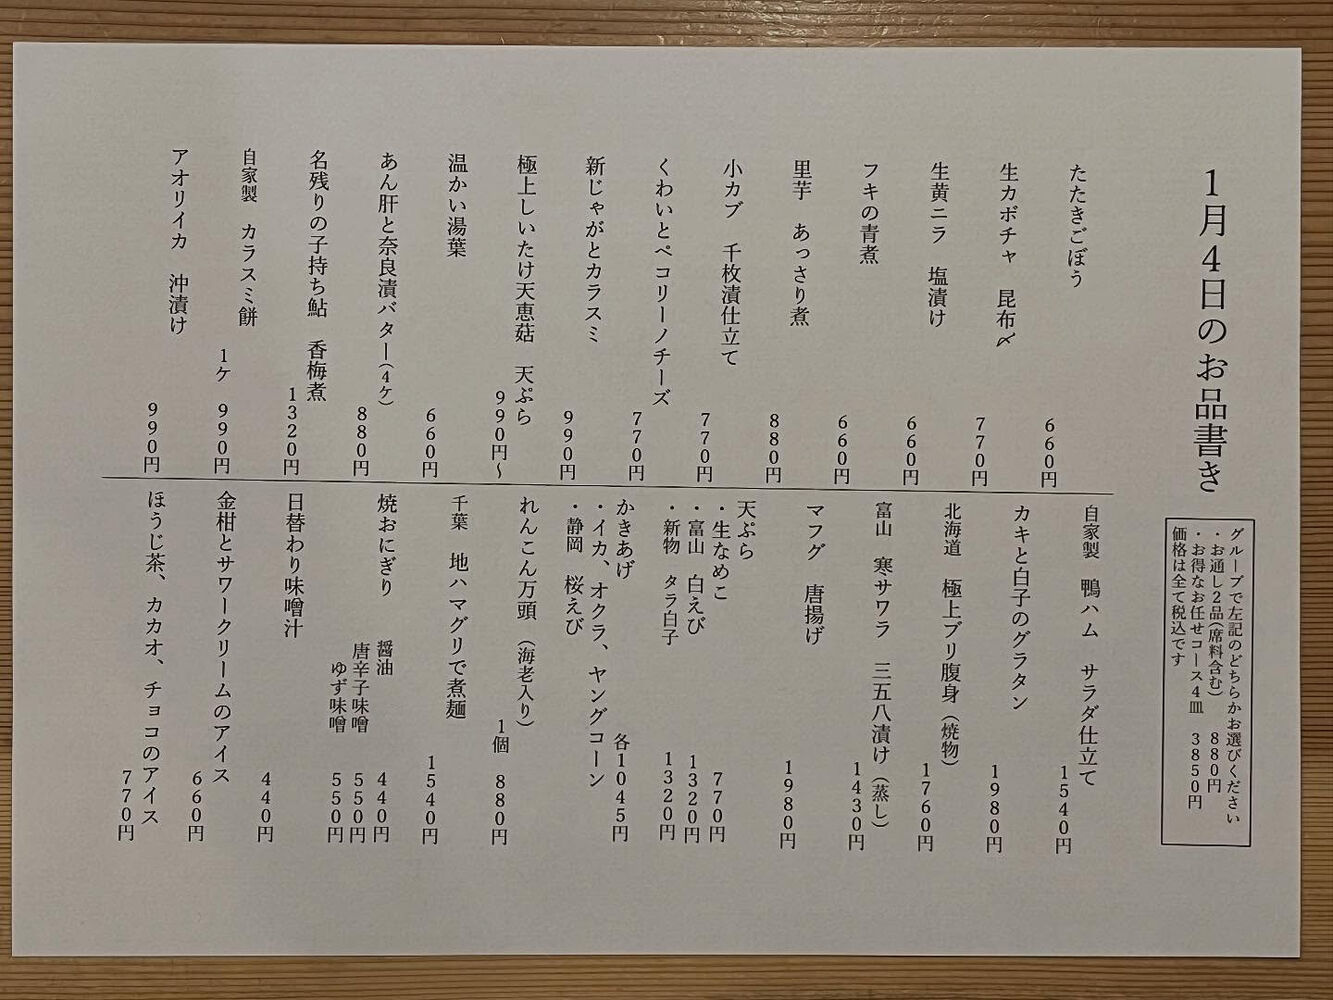 1月4日のお品書き
グループで左記のどちらかお選びください
・お通し2品(席料含む) 880円
・お得なお任せコース4皿 3850円
価格は全て税込です
たたきごぼう 660円
生カボチャ 昆布〆 770円
生黄ニラ 塩漬け 660円
フキの青煮 660円
里芋 あっさり煮 880円
小カブ 千枚漬仕立て 770円
くわいとペコリーノチーズ 770円
新じゃがとカラスミ 990円
極上しいたけ天恵菇 天ぷら 990円〜
温かい湯葉 660円
あん肝と奈良漬バター(4ケ) 880円
名残りの子持ち鮎 香梅煮 1320円
自家製 カラスミ餅 1ケ 990円
アオリイカ 沖漬け 990円
自家製 鴨ハム サラダ仕立て 1540円
カキと白子のグラタン 1980円
北海道 極上ブリ腹身(焼物) 1760円
富山 寒サワラ 三五八漬け(蒸し) 1430円
マフグ 唐揚げ 1980円
天ぷら
・生なめこ 770円
・富山 白えび 1320円
・新物 タラ白子 1320円
かきあげ 各1045円
・イカ、オクラ、ヤングコーン
・静岡 桜えび
れんこん万頭(海老入り) 1個 880円
千葉 地ハマグリで煮麺 1540円
焼おにぎり 醤油 440円
唐辛子味噌 550円
ゆず味噌 550円
日替わり味噌汁 440円
金柑とサワークリームのアイス 660円
ほうじ茶、カカオ、チョコのアイス 770円